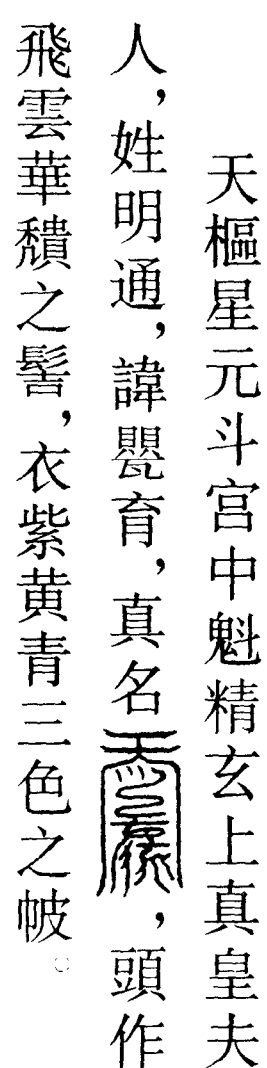 天樞星元斗宮中魁精玄上真皇夫
人，姓明通，諱甖育，真名，頭作
飛雲華穨之髻，衣紫黄青三色之帔。